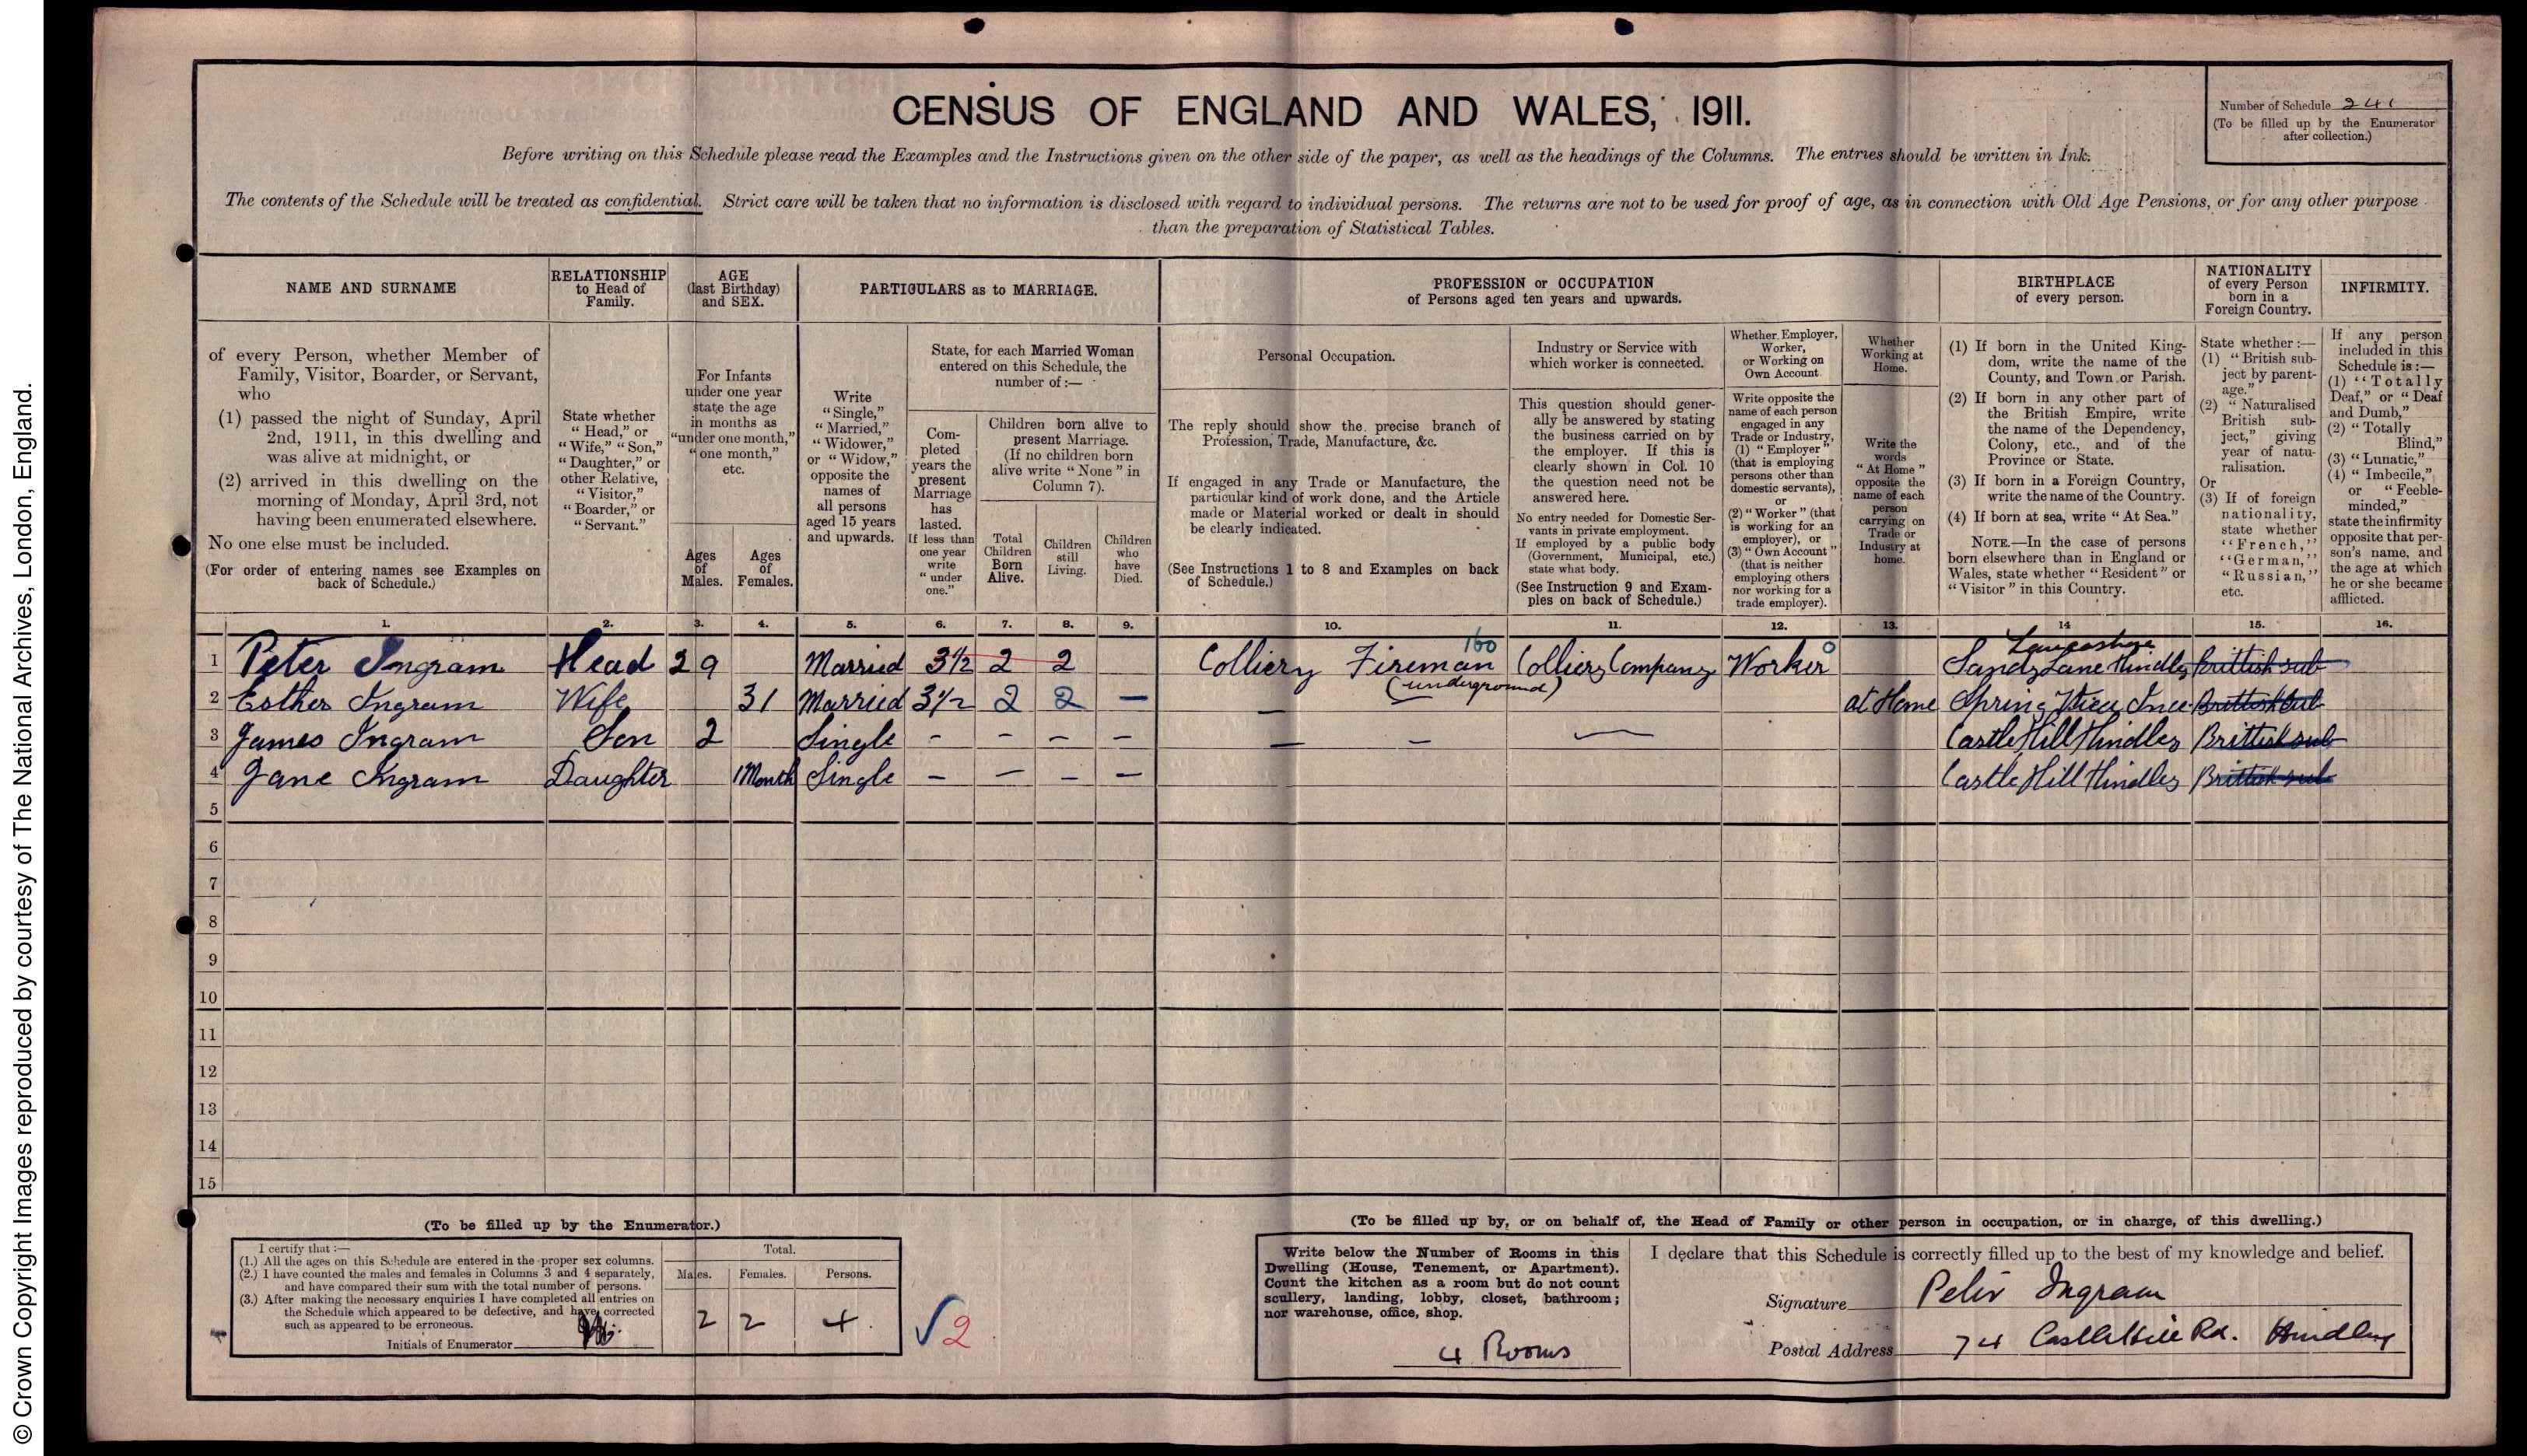 CENSUS OF ENGLAND AND WALES, 1911.
Number of Schedule 241
(To be filled up by the Enumerator
after collection.)
Before writing on this Schedule please read the Examples and the Instructions given on the other side of the paper, as well as the headings of the Columns. The entries should be written in Ink.
The contents of the Schedule will be treated as confidential. Strict care will be taken that no information is disclosed with regard to individual persons. The returns are not to be used for proof of age, as in connection with Old Age Pensions, or for any other purpose
than the preparation of Statistical Tables.
NAME AND SURNAME
of every Person, whether Member of
Family, Visitor, Boarder, or Servant,
who
(1) passed the night of Sunday, April
2nd, 1911, in this dwelling and
was alive at midnight, or
(2) arrived in this dwelling on the
morning of Monday, April 3rd, not
having been enumerated elsewhere.
No one else must be included.
(For order of entering names see Examples on
back of Schedule.)
RELATIONSHIP
to Head of
Family.
State whether
"Head," or
"Wife," "Son,"
"Daughter," or
other Relative,
"Visitor,"
"Boarder," or
"Servant."
AGE
(last Birthday)
and SEX.
For Infants
under one year
state the age
in months as
"under one month,"
"one month,"
etc.
Ages
of
Males.
Ages
of
Females.
PARTICULARS as to MARRIAGE.
Write
"Single,"
"Married,"
"Widower,"
or "Widow,"
opposite the
names of
all persons
aged 15 years
and upwards.
State, for each Married Woman
entered on this Schedule, the
number of:—
Com-
pleted
years the
present
Marriage
has
lasted.
If less than
one year
write
"under
one."
Children born alive to
present Marriage.
(If no children born
alive write "None" in
Column 7).
Total
Children
Born
Alive.
Children
still
Living.
Children
who
have
Died.
PROFESSION or OCCUPATION
of Persons aged ten years and upwards.
Personal Occupation.
The reply should show the precise branch of
Profession, Trade, Manufacture, &c.
If engaged in any Trade or Manufacture, the
particular kind of work done, and the Article
made or Material worked or dealt in should
be clearly indicated.
(See Instructions 1 to 8 and Examples on back
of Schedule.)
Industry or Service with
which worker is connected.
This question should gener-
ally be answered by stating
the business carried on by
the employer. If this is
clearly shown in Col. 10
the question need not be
answered here.
No entry needed for Domestic Ser-
vants in private employment.
If employed by a public body
(Government, Municipal, etc.)
state what body.
(See Instruction 9 and Exam-
ples on back of Schedule.)
Whether Employer,
Worker,
or Working on
Own Account.
Write opposite the
name of each person
engaged in any
Trade or Industry,
(1) "Employer"
(that is employing
persons other than
domestic servants),
or
(2) "Worker" (that
is working for an
employer), or
(3) "Own Account"
(that is neither
employing others
nor working for a
trade employer).
Whether
Working at
Home.
Write the
words
"At Home"
opposite the
name of each
person
carrying on
Trade or
Industry at
home.
BIRTHPLACE
of every person.
(1) If born in the United King-
dom, write the name of the
County, and Town or Parish.
(2) If born in any other part of
the British Empire, write
the name of the Dependency,
Colony, etc., and of the
Province or State.
(3) If born in a Foreign Country,
write the name of the Country.
(4) If born at sea, write "At Sea."
NOTE.—In the case of persons
born elsewhere than in England or
Wales, state whether "Resident" or
"Visitor" in this Country.
NATIONALITY
of every Person
born in a
Foreign Country.
State whether:—
(1) "British sub-
ject by parent-
age."
(2) "Naturalised
British sub-
ject," giving
year of natu-
ralisation.
Or
(3) If of foreign
nationality,
state whether
"French,"
"German,"
"Russian,"
etc.
INFIRMITY.
If any person
included in this
Schedule is:—
(1) "Totally
Deaf," or "Deaf
and Dumb,"
(2) "Totally
Blind,"
(3) "Lunatic,"
(4) "Imbecile,"
or "Feeble-
minded,"
state the infirmity
opposite that per-
son's name, and
the age at which
he or she became
afflicted.
1. 2. 3. 4. 5. 6. 7. 8. 9. 10. 11. 12. 13. 14 15. 16.
160 Lancashire
1 Peter Ingram Head 29 Married 3½ 2 2 Colliery Fireman Colliery Company Worker Sandy Lane Hindley Brittish sub
(underground)
2 Esther Ingram Wife 31 Married 3½ 2 2 — — at Home Spring View Ince Brittish sub
3 James Ingram Son 2 Single - - - - — — — Castle Hill Hindley Brittish sub
4 Jane Ingram Daughter 1 Month Single - - - - Castle Hill Hindley Brittish sub
5
6
7
8
9
10
11
12
13
14
15
(To be filled up by the Enumerator.)
I certify that:—
(1.) All the ages on this Schedule are entered in the proper sex columns.
(2.) I have counted the males and females in Columns 3 and 4 separately,
and have compared their sum with the total number of persons.
(3.) After making the necessary enquiries I have completed all entries on
the Schedule which appeared to be defective, and have corrected
such as appeared to be erroneous.
Initials of Enumerator
Total.
Males. Females. Persons.
2 2 4
√2
(To be filled up by, or on behalf of, the Head of Family or other person in occupation, or in charge, of this dwelling.)
Write below the Number of Rooms in this
Dwelling (House, Tenement, or Apartment).
Count the kitchen as a room but do not count
scullery, landing, lobby, closet, bathroom;
nor warehouse, office, shop.
4 Rooms
I declare that this Schedule is correctly filled up to the best of my knowledge and belief.
Signature Peter Ingram
Postal Address 74 Castle Hill Rd. Hindley
© Crown Copyright Images reproduced by courtesy of The National Archives, London, England.